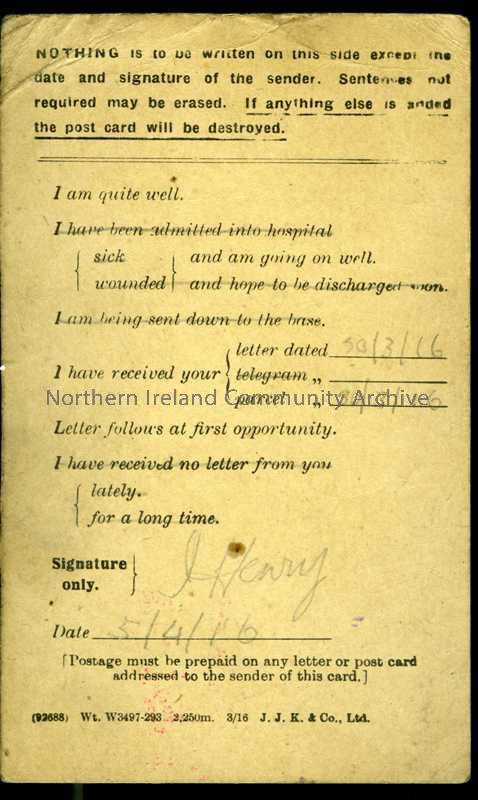 NOTHING is to be written on this side except the
date and signature of the sender. Sentences not
required may be erased. If anything else is added
the post card will be destroyed.
I am quite well.
I have been admitted into hospital
sick and am going on well.
wounded and hope to be discharged soon.
I am being sent down to the base.
letter dated 30/3/16
I have received your telegram „
parcel „
Northern Ireland Community Archive
Letter follows at first opportunity.
I have received no letter from you
lately.
for a long time.
Signature
only.
J Henry
Date 5/4/16
[Postage must be prepaid on any letter or post card
addressed to the sender of this card.]
(92688) Wt. W3497-293 2,250m. 3/16 J. J. K. & Co., Ltd.